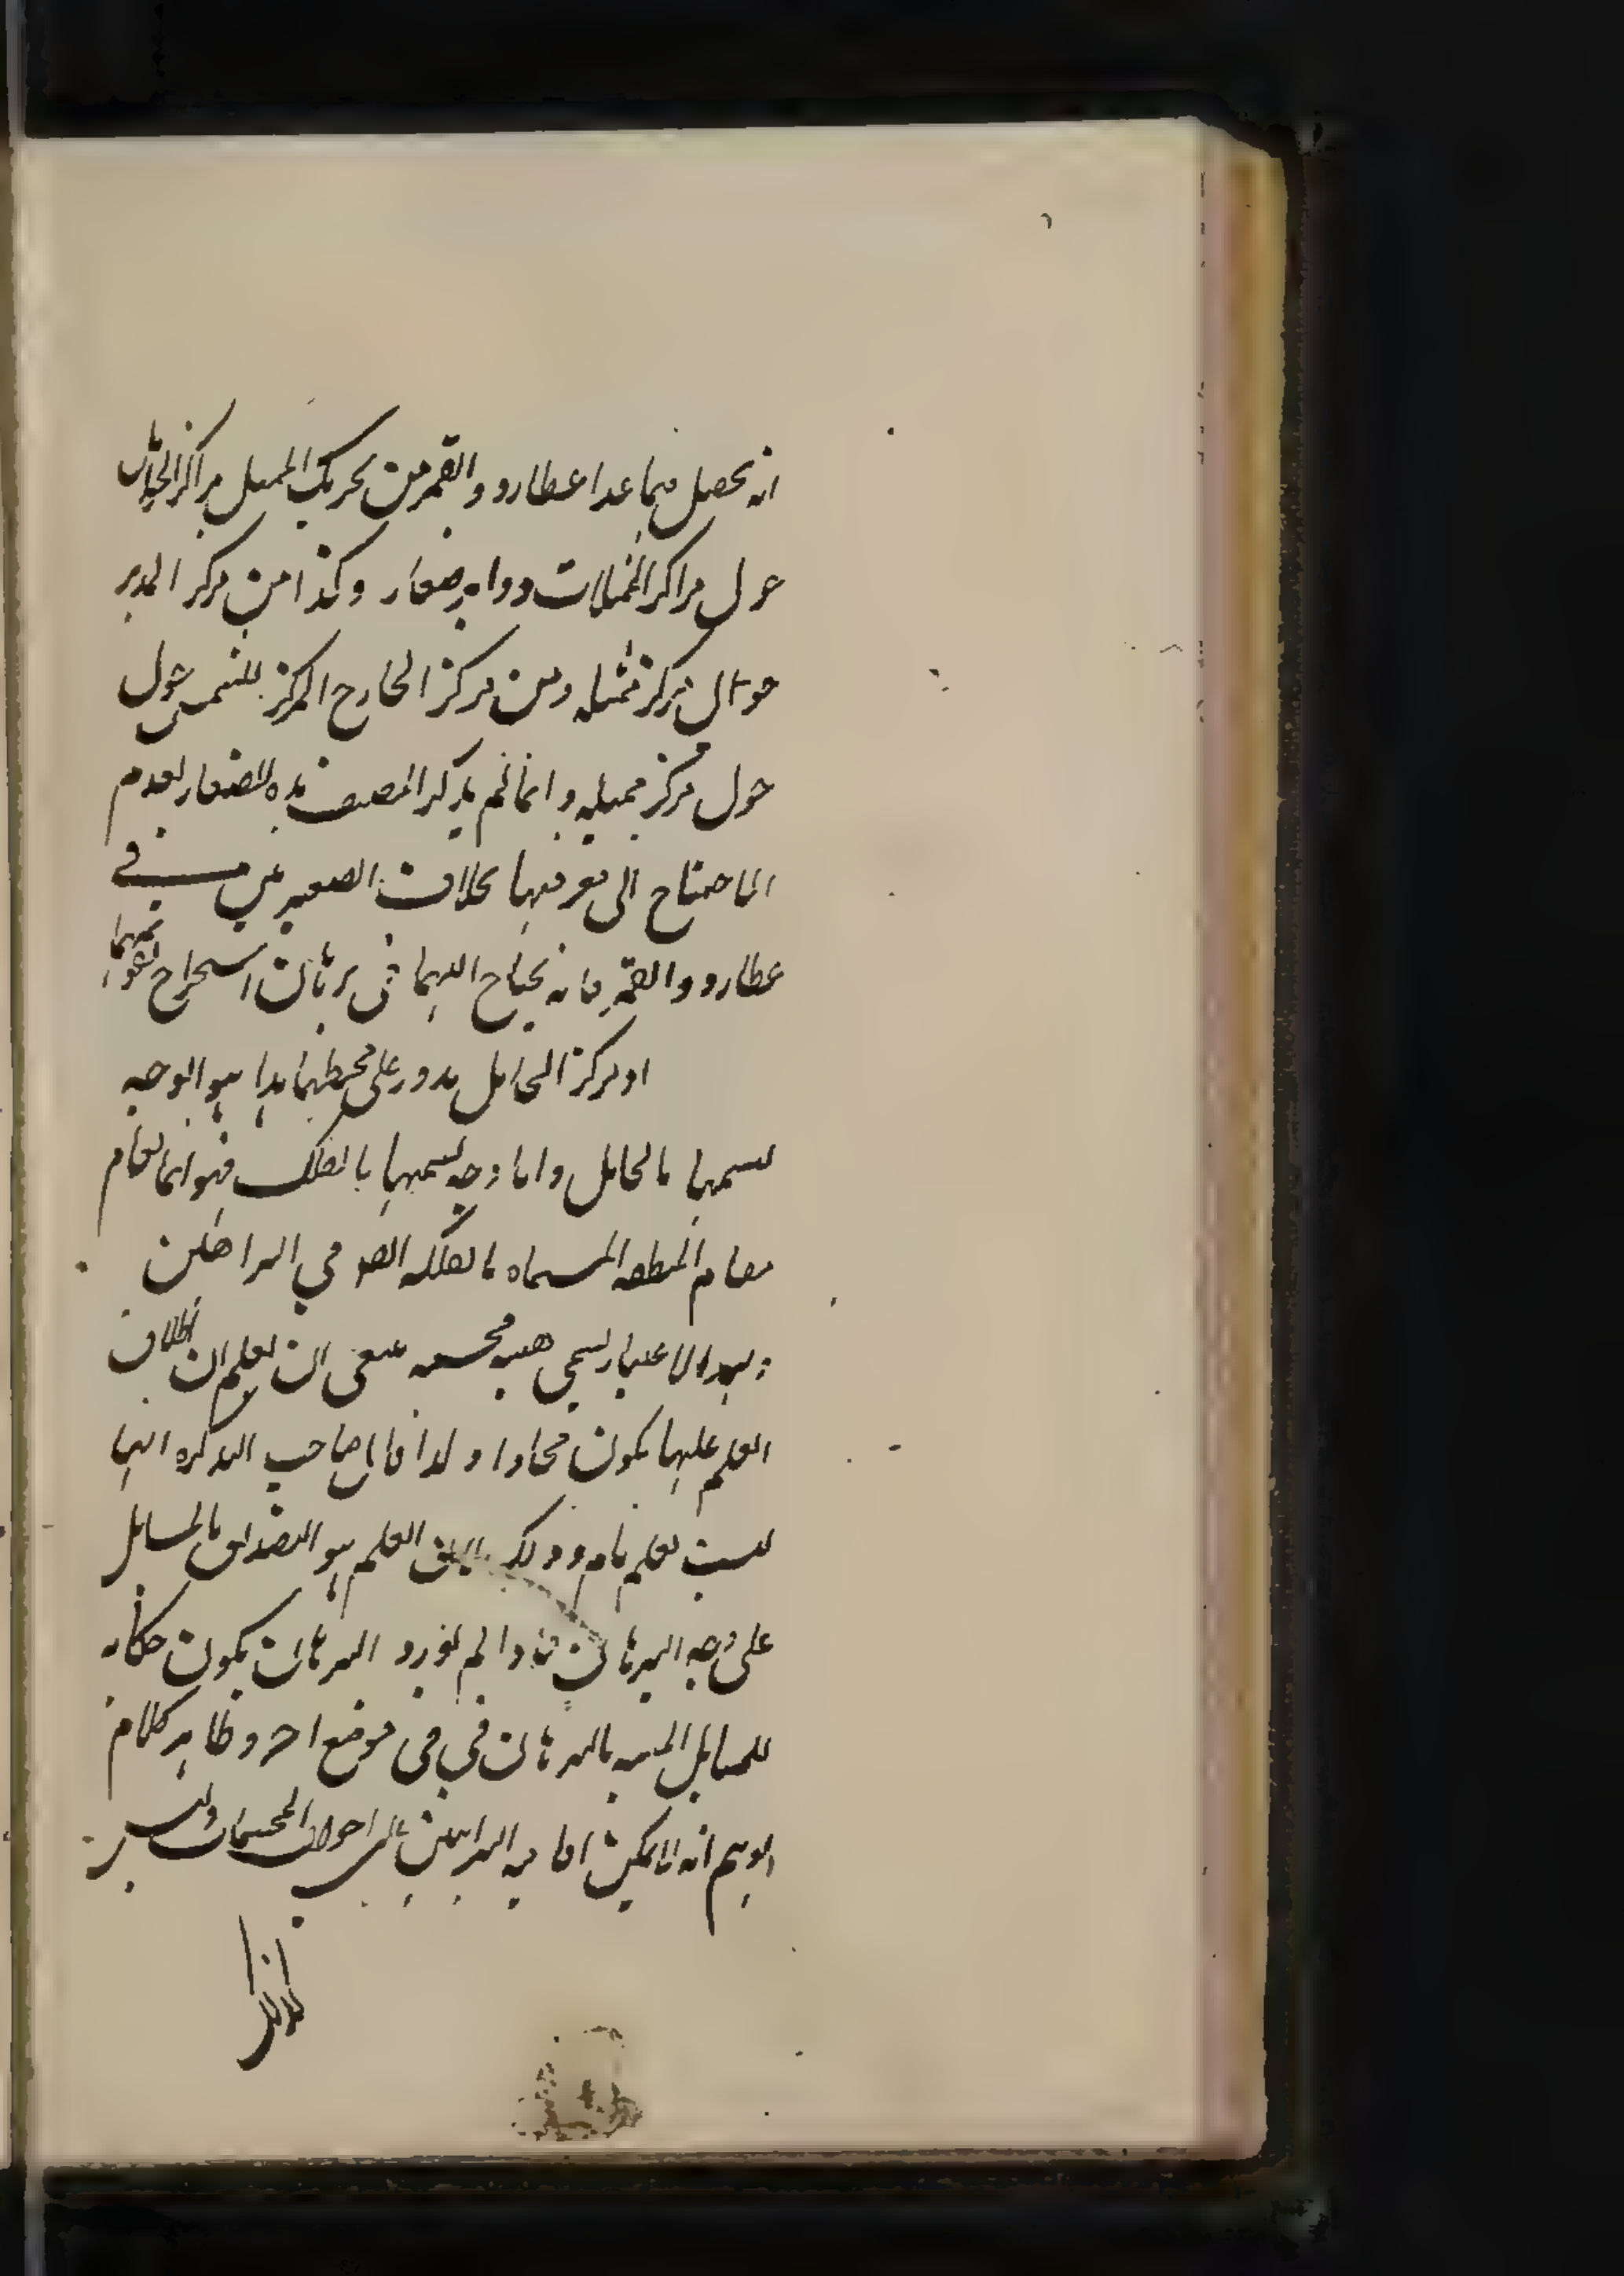 انه يحصل فيما عدا عطارد والقمر من تحريك الممثل مراكز الحوامل
حول مراكز الممثلات دواير صغار وكذا من مركز المدير
حوال مركز ممثله ومن مركز الخارج المركز للشمس حول
حول مركز ممثله وانما لم يذكر المصنف هذه الصغار لعدم
الاحتياج الى معرفتها بخلاف الصغيرتين في
عطارد والقمر فانه يحتاج اليهما في برهان استخراج تقويمهما
او مركز الحامل يدور على محيطهما هذا هو الوجه
لتسميتها بالحامل واما وجه تسميتها بالفلك فهو انما تقام
مقام المنطقة المسماه بالفلك في البراهين
وبهذا الاعتبار تسمى هيئة مجسمة ينبغي ان يعلم ان اطلاق
العلم عليها يكون مجازا ولذا قال صاحب التذكرة انها
ليست بعلم تام وذلك لان العلم هو التصديق بالمسايل
على وجه البرهان فاذا لم يورد البرهان يكون حكاية
للمسايل المبينة بالبرهان في في موضع اخر وظاهر كلام
يوهم انه لا يمكن اقامة البراهين على احوال المجسمات وليس
كذلك